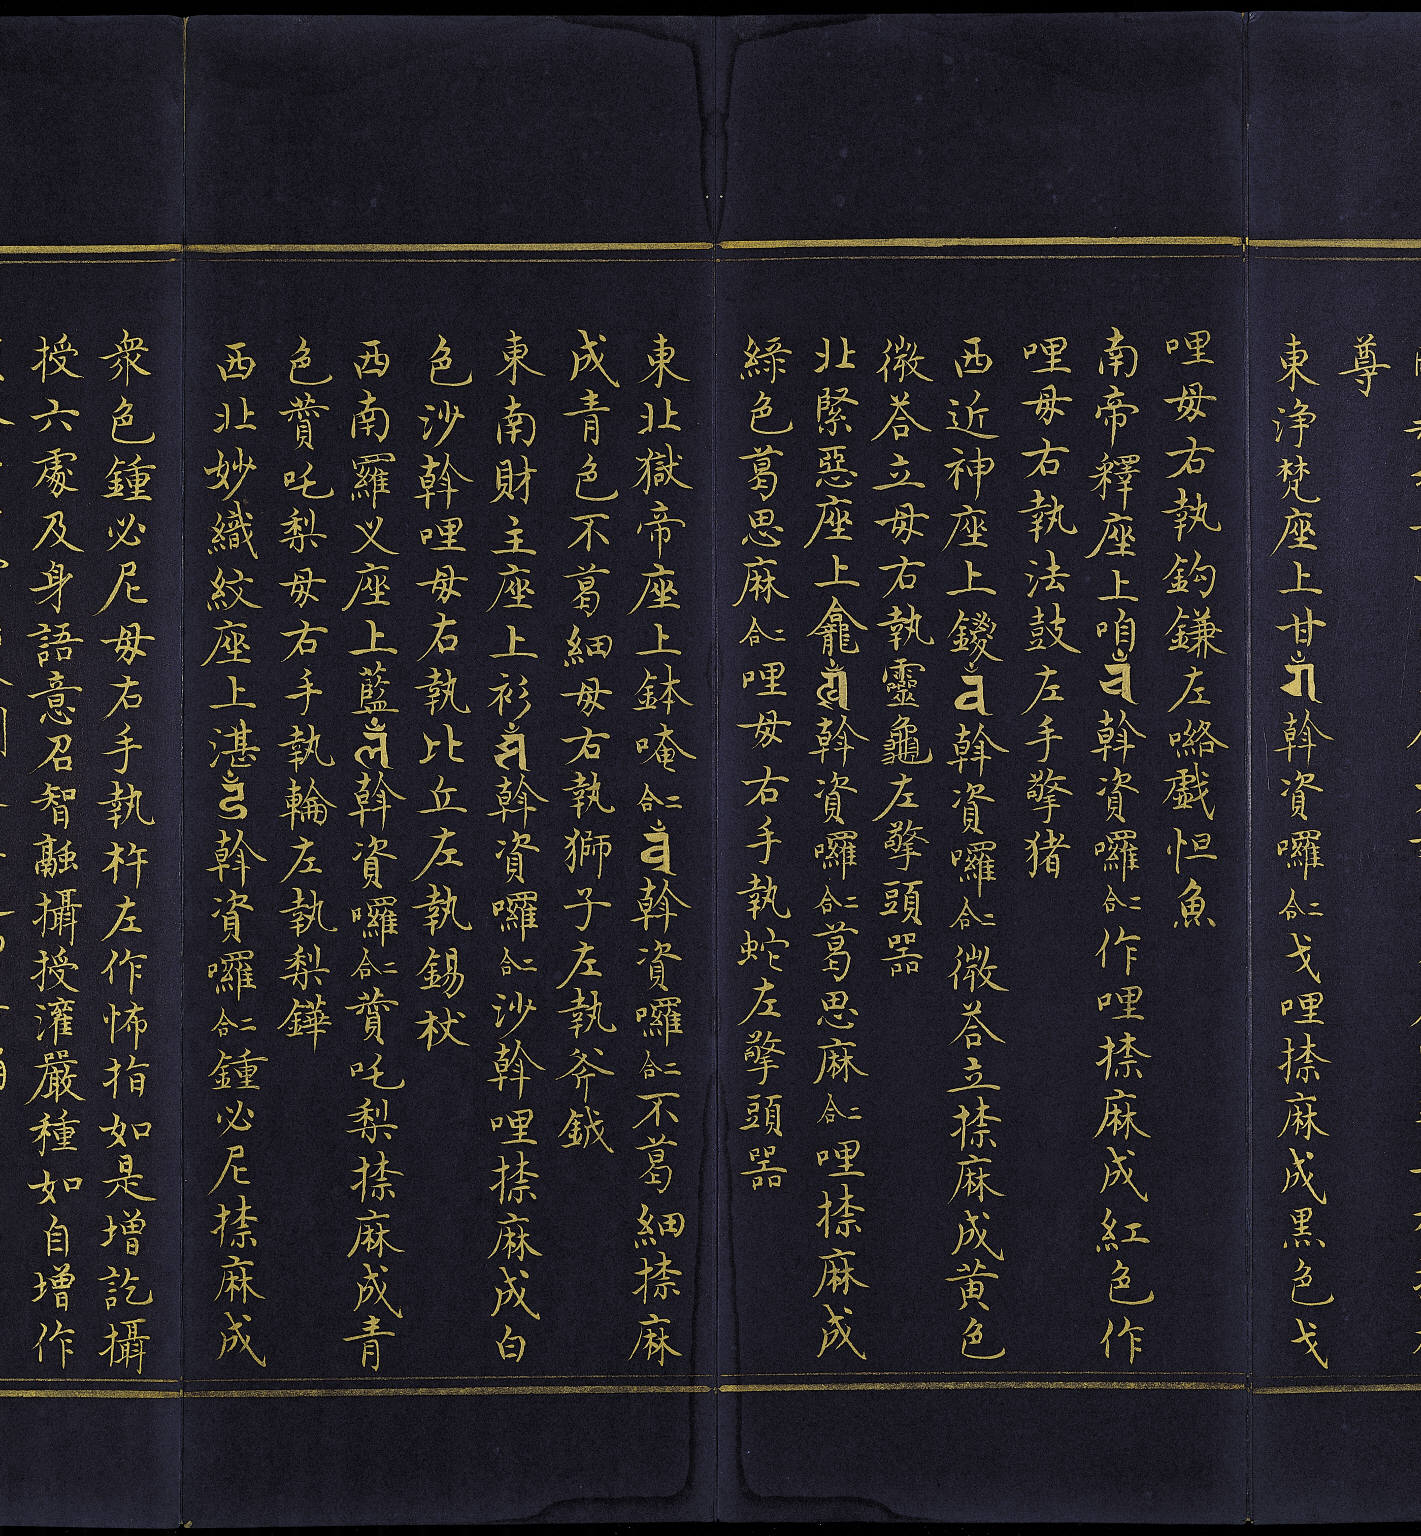 尊
東浄梵座上甘斡資囉合二戈哩捺麻成黒色戈
哩毋右執鈎鎌左𠹌戲怛魚
南帝釋座上咱斡資囉合二作哩捺麻成紅色作
哩毋右執法鼓左手擎猪
西近神座上鑁斡資囉合二微荅立捺麻成黄色
微荅立毋右執靈龜左擎頭器
北緊惡座上龕斡資囉合二葛思麻合二哩捺麻成
緑色葛思麻合二哩毋右手執蛇左擎頭器
東北獄帝座上鉢唵合二斡資囉合二不葛細捺麻
成青色不葛細毋右執獅子左執斧鉞
東南財主座上衫斡資囉合二沙斡哩捺麻成白
色沙斡哩毋右執比丘左執錫杖
西南羅义座上藍斡資囉合二賛吒梨捺麻成青
色賛吒梨毋右手執輪左執梨鏵
西北妙織紋座上湛斡資囉合二鍾必尼捺麻成
衆色鍾必尼毋右手執杵左作怖指如是增訖攝
授六處及身語意召智融攝授灌嚴種如自增作